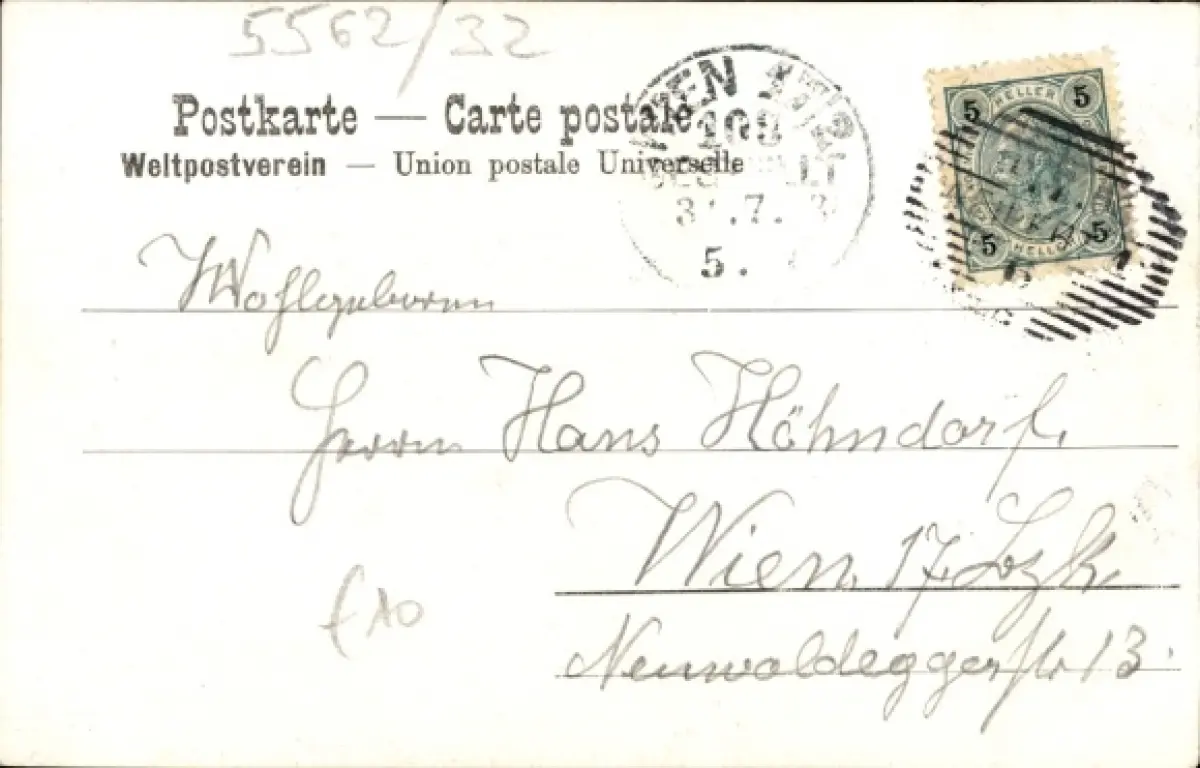 5562/32
Postkarte — Carte postale
Weltpostverein — Union postale Universelle
WIEN 17/3
108
BESTELLT
5.
5 HELLER 5
5 HELLER 5
Wohlgeboren
Herrn Hans Höhndorf,
Wien, 17 Bzk
Neuwaldeggerstr 13.